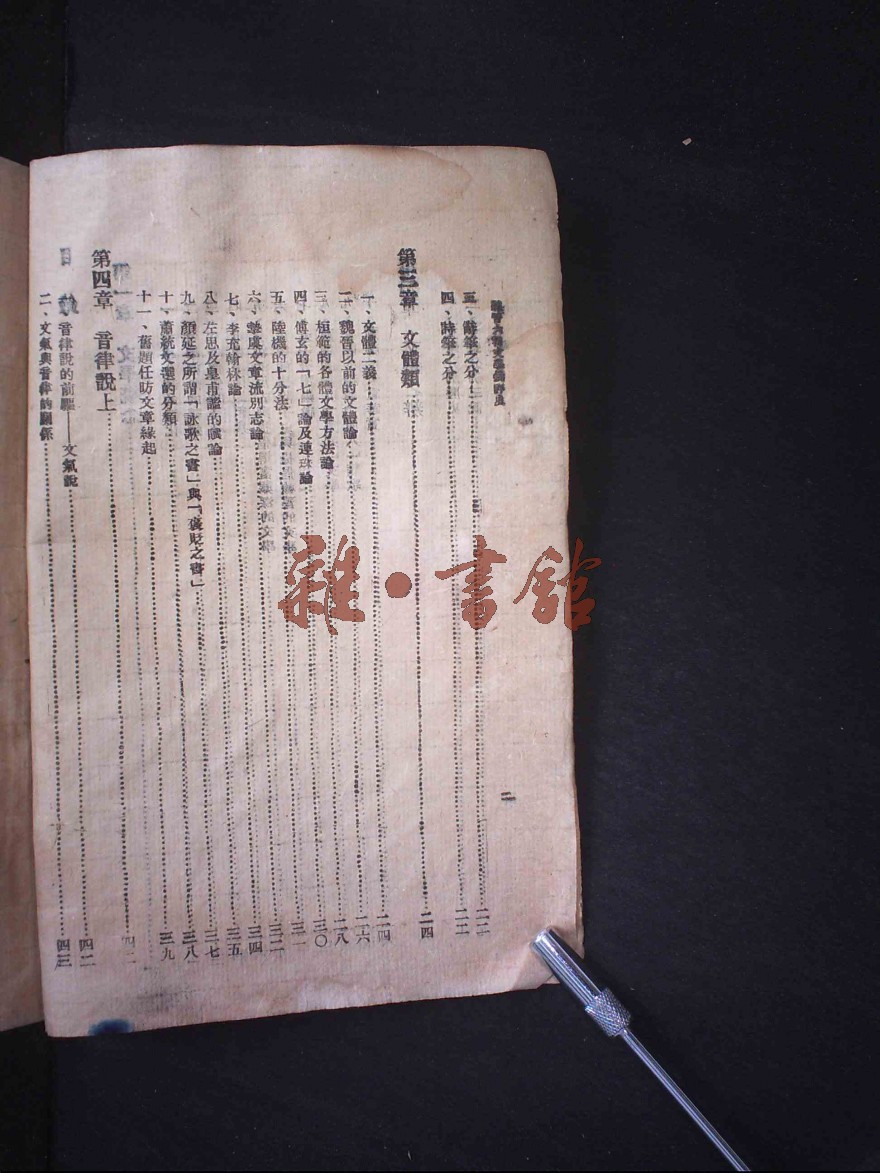 魏晉六朝文學批評史
二
三、辭筆之分……二二
四、詩筆之分……二二
第三章 文體類……二四
一、文體二義……二四
二、魏晉以前的文體論……二六
三、桓範的各體文學方法論……二八
四、傅玄的「七」論及連珠論……三〇
五、陸機的十分法……三一
六、摯虞文章流別志論……三二
七、李充翰林論……三四
八、左思及皇甫謐的賦論……三五
九、顏延之所謂「詠歌之書」與「褒貶之書」……三七
十、蕭統文選的分類……三八
十一、舊題任昉文章緣起……三九
第四章 音律說上……四二
音律說的前驅——文氣說……四二
二、文氣與音律的關係……四三
雜·書館